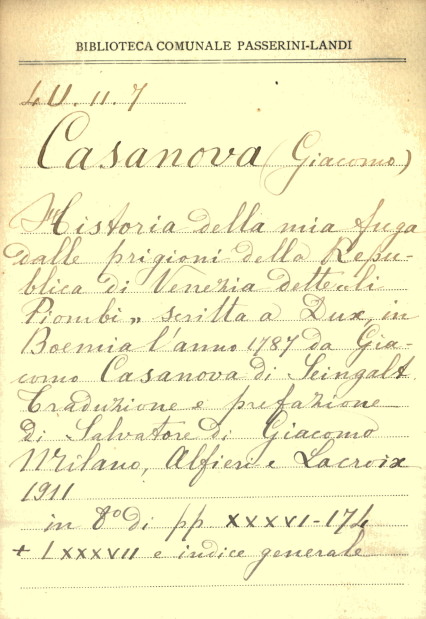 BIBLIOTECA COMUNALE PASSERINI-LANDI
4U.11.7
Casanova (Giacomo)
"Historia della mia fuga
dalle prigioni della Repu-
bblica di Venezia dette "li
Piombi" scritta a Dux, in
Boemia l'anno 1787 da Gia-
como Casanova di Seingalt
Traduzione e prefazione
di Salvatore di Giacomo
Milano, Alfieri e Lacroix
1911
in 8° di pp XXXVI-174
+ LXXXVII e indice generale